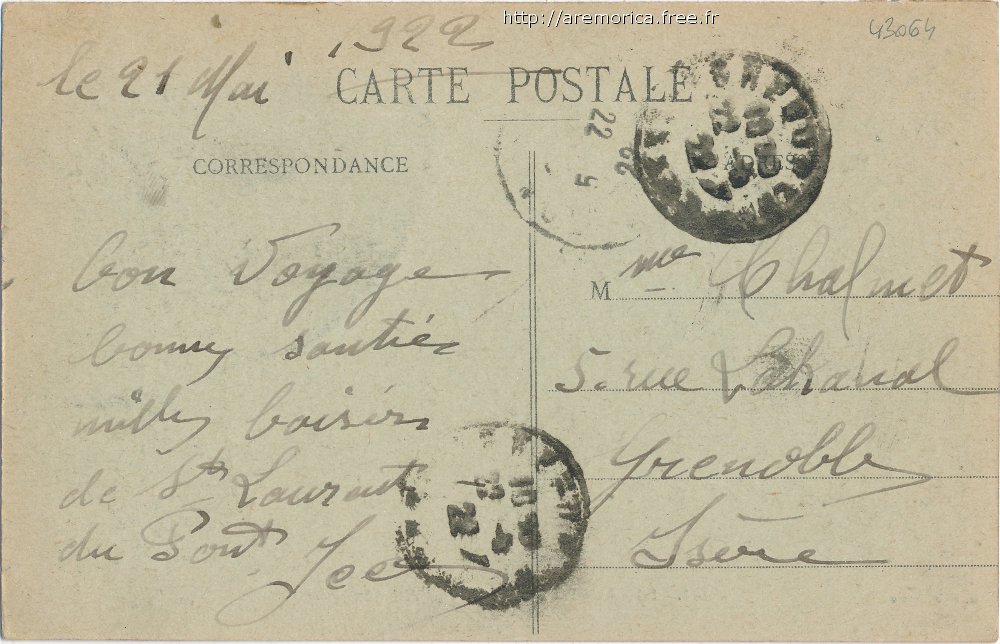 http://aremorica.free.fr
43064
le 21 Mai 1922
CARTE POSTALE
CORRESPONDANCE
bon Voyage
bonne santié
mille baisers
de St Laurent
du Pont
22
22
5
ADRESSE
Mme Chalmet
5. rue Lakanal
Grenoble
Isère